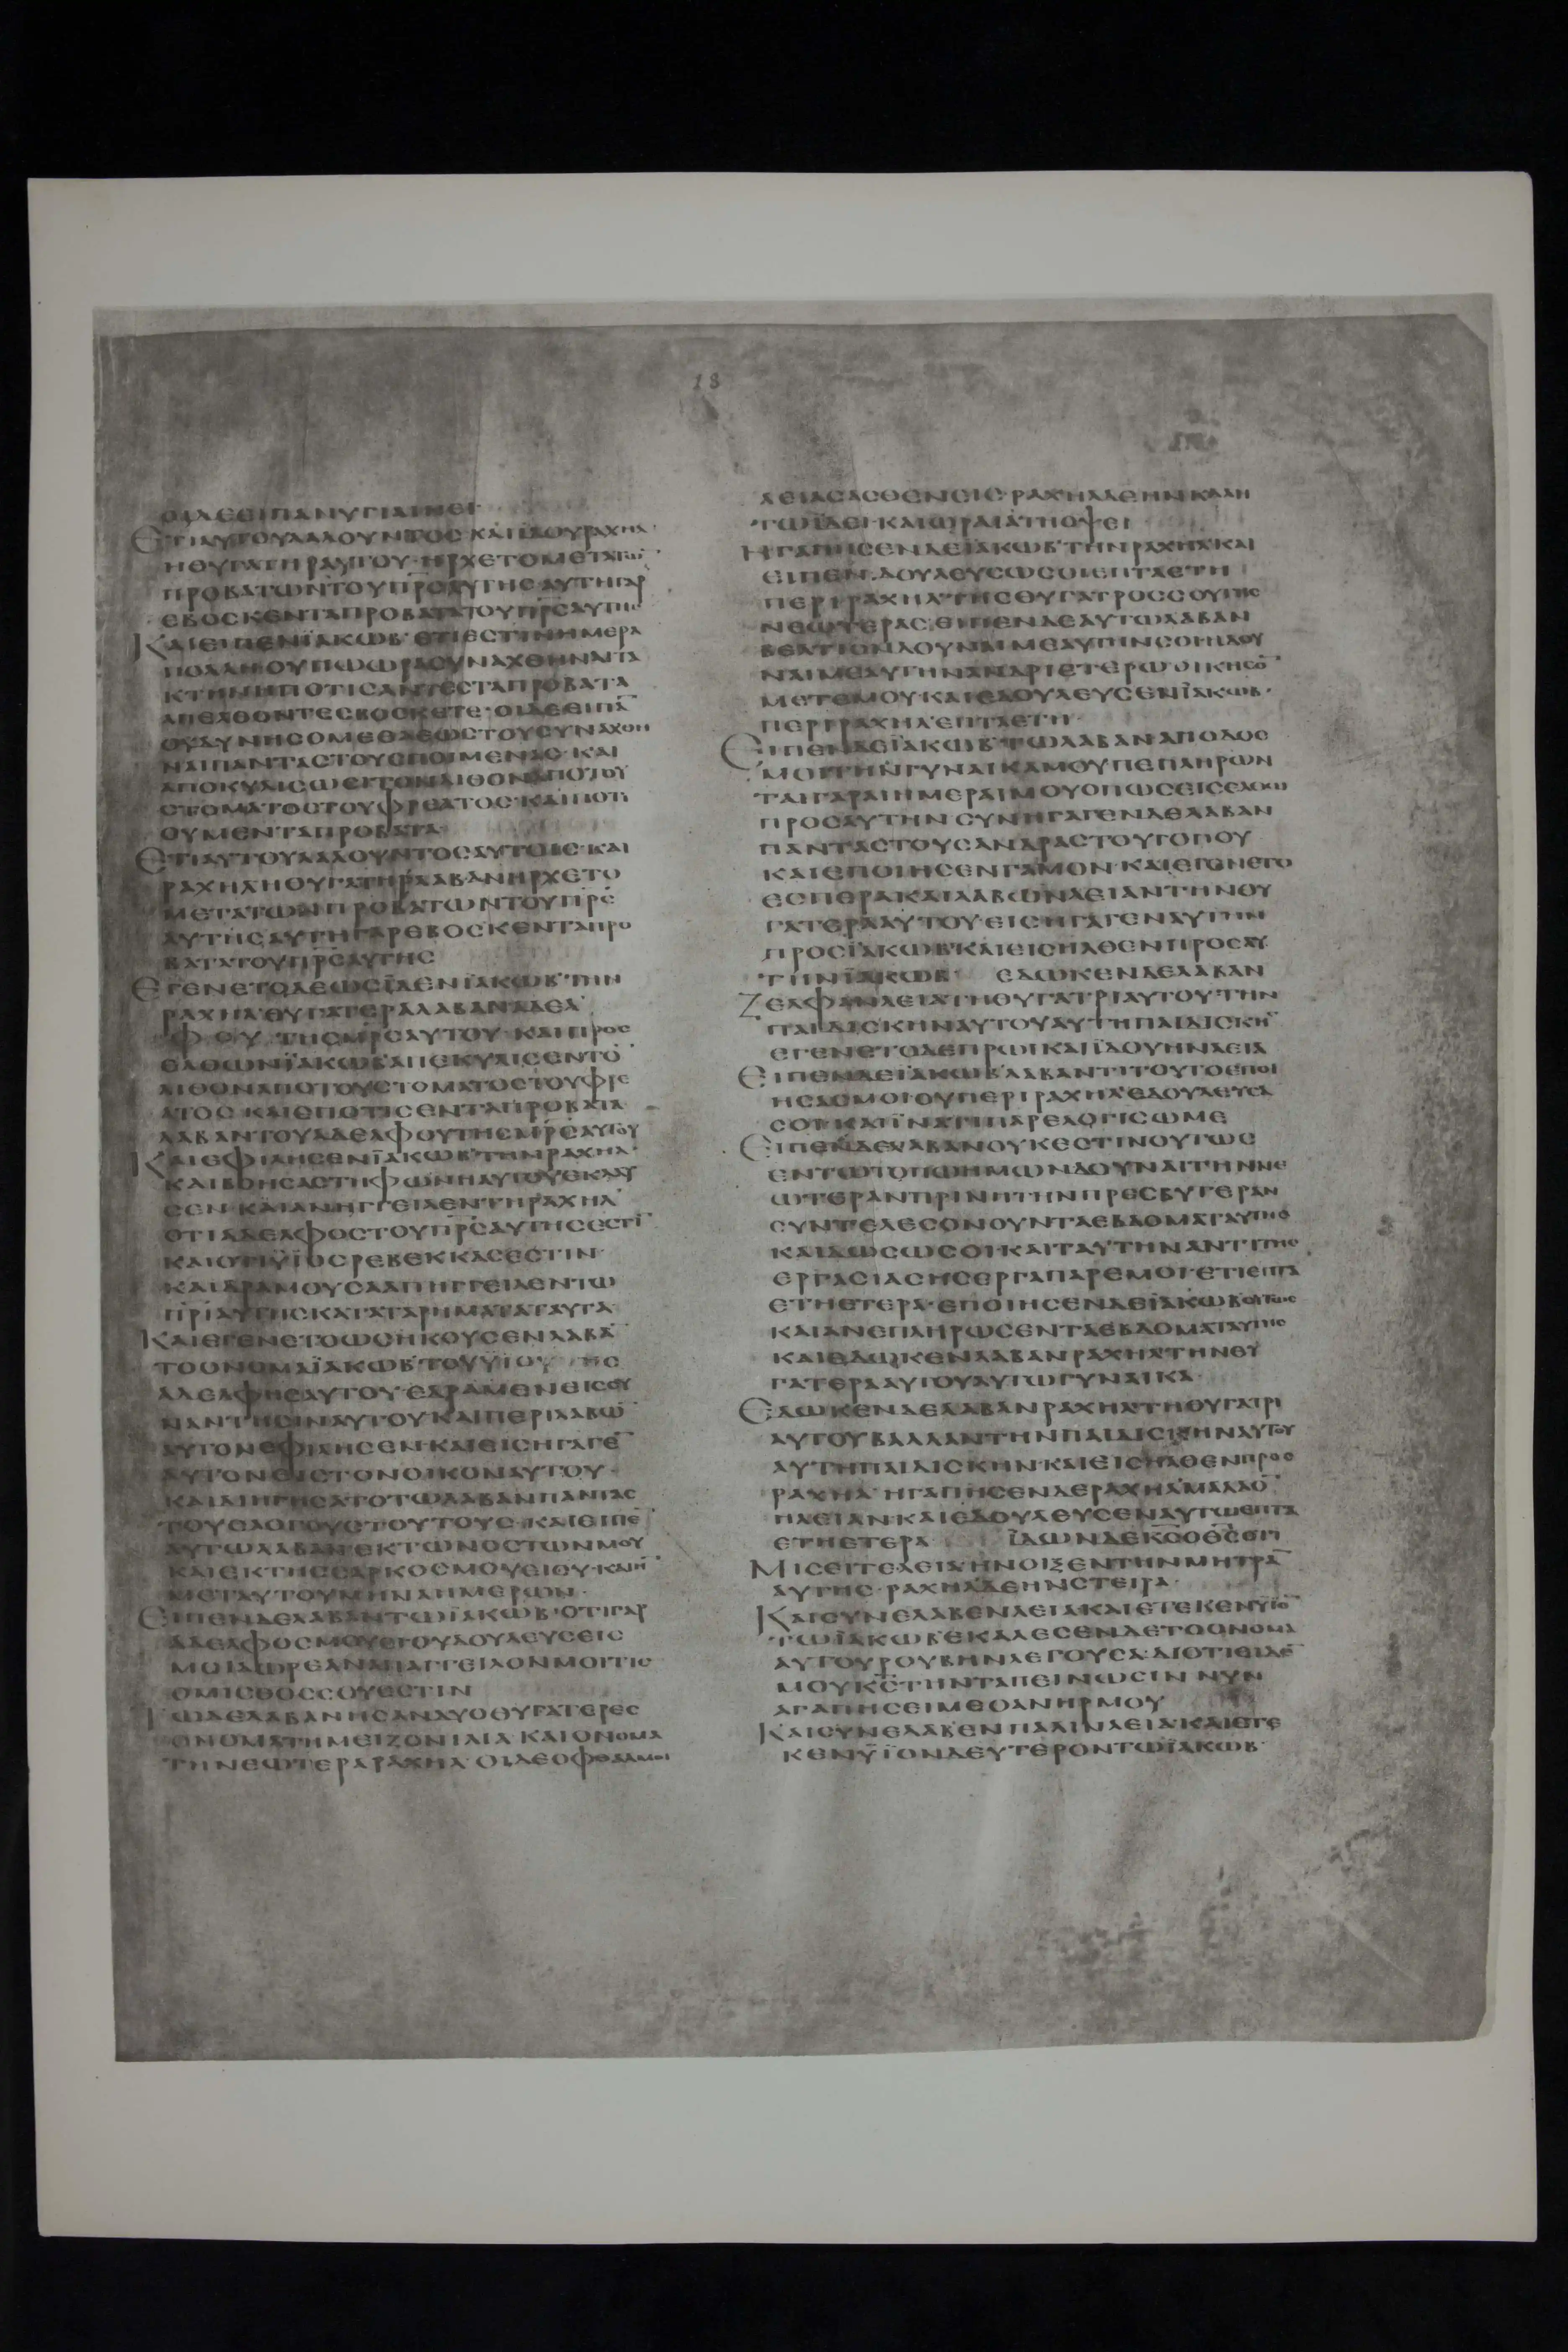 18
ΟΙΔΕΕΙΠΑΝΥΓΙΑΙΝΕΙ·
ΕΤΙΑΥΤΟΥΛΑΛΟΥΝΤΟΣ ΚΑΙΪΔΟΥΡΑΧΗΛ·
ΗΘΥΓΑΤΗΡΑΥΤΟΥ·ΗΡΧΕΤΟΜΕΤΑΤΩ̅
ΠΡΟΒΑΤΩΝΤΟΥΠ̅Ρ̅Σ̅ΑΥΤΗΣ·ΑΥΤΗΓΑΡ
ΕΒΟΣΚΕΝΤΑΠΡΟΒΑΤΑΤΟΥΠ̅Ρ̅Σ̅ΑΥΤΗΣ
ΚΑΙΕΙΠΕΝΪΑΚΩΒ·ΕΤΙΕΣΤΙΝΗΜΕΡΑ
ΠΟΛΛΗΟΥΠΩΩΡΑΣΥΝΑΧΘΗΝΑΙΤΑ
ΚΤΗΝΗΠΟΤΙΣΑΝΤΕΣΤΑΠΡΟΒΑΤΑ
ΑΠΕΛΘΟΝΤΕΣΒΟΣΚΕΤΕ·ΟΙΔΕΕΙΠΑ̅
ΟΥΔΥΝΗΣΟΜΕΘΑΕΩΣΤΟΥΣΥΝΑΧΘΗ
ΝΑΙΠΑΝΤΑΣΤΟΥΣΠΟΙΜΕΝΑΣ·ΚΑΙ
ΑΠΟΚΥΛΙΣΩΣΙΤΟΝΛΙΘΟΝΑΠΟΤΟΥ
ΣΤΟΜΑΤΟΣΤΟΥΦΡΕΑΤΟΣ·ΚΑΙΠΟΤΙ
ΟΥΜΕΝΤΑΠΡΟΒΑΤΑ
ΕΤΙΑΥΤΟΥΛΑΛΟΥΝΤΟΣΑΥΤΟΙΣ·ΚΑΙ
ΡΑΧΗΛΗΘΥΓΑΤΗΡΛΑΒΑΝΗΡΧΕΤΟ
ΜΕΤΑΤΩΝΠΡΟΒΑΤΩΝΤΟΥΠ̅Ρ̅Σ̅
ΑΥΤΗΣΑΥΤΗΓΑΡΕΒΟΣΚΕΝΤΑΠΡΟ
ΒΑΤΑΤΟΥΠ̅Ρ̅Σ̅ΑΥΤΗΣ
ΕΓΕΝΕΤΟΔΕΩΣΪΔΕΝΪΑΚΩΒ·ΤΗΝ
ΡΑΧΗΛ·ΘΥΓΑΤΕΡΑΛΑΒΑΝΑΔΕΛ
ΦΟΥ ΤΗΣΜ̅Ρ̅Σ̅ΑΥΤΟΥ·ΚΑΙΠΡΟΣ
ΕΛΘΩΝΪΑΚΩΒ·ΑΠΕΚΥΛΙΣΕΝΤΟ̅
ΛΙΘΟΝΑΠΟΤΟΥΣΤΟΜΑΤΟΣΤΟΥΦΡΕ
ΑΤΟΣ·ΚΑΙΕΠΟΤΙΣΕΝΤΑΠΡΟΒΑΤΑ
ΛΑΒΑΝΤΟΥΑΔΕΛΦΟΥΤΗΣΜ̅Ρ̅Σ̅ΑΥΤΟΥ
ΚΑΙΕΦΙΛΗΣΕΝΪΑΚΩΒ·ΤΗΝΡΑΧΗΛ·
ΚΑΙΒΟΗΣΑΣΤΗΦΩΝΗΑΥΤΟΥΕΚΛΑΥ
ΣΕΝ·ΚΑΙΑΝΗΓΓΕΙΛΕΝΤΗΡΑΧΗΛ
ΟΤΙΑΔΕΛΦΟΣΤΟΥΠ̅Ρ̅Σ̅ΑΥΤΗΣΕΣΤΙ̅
ΚΑΙΟΤΙΫΙΟΣΡΕΒΕΚΚΑΣΕΣΤΙΝ·
ΚΑΙΔΡΑΜΟΥΣΑΑΠΗΓΓΕΙΛΕΝΤΩ
Π̅Ρ̅Ι̅ΑΥΤΗΣΚΑΤΑΤΑΡΗΜΑΤΑΤΑΥΤΑ
ΚΑΙΕΓΕΝΕΤΟΩΣΗΚΟΥΣΕΝΛΑΒΑ̅
ΤΟΟΝΟΜΑΪΑΚΩΒ·ΤΟΥΫΙΟΥ ΤΗΣ
ΑΔΕΛΦΗΣΑΥΤΟΥ·ΕΔΡΑΜΕΝΕΙΣΣΥ
ΝΑΝΤΗΣΙΝΑΥΤΟΥΚΑΙΠΕΡΙΛΑΒΩ̅
ΑΥΤΟΝΕΦΙΛΗΣΕΝ·ΚΑΙΕΙΣΗΓΑΓΕ̅
ΑΥΤΟΝΕΙΣΤΟΝΟΙΚΟΝΑΥΤΟΥ·
ΚΑΙΔΙΗΓΗΣΑΤΟΤΩΛΑΒΑΝΠΑΝΤΑΣ
ΤΟΥΣΛΟΓΟΥΣΤΟΥΤΟΥΣ·ΚΑΙΕΙΠΕ̅
ΑΥΤΩΛΑΒΑΝ·ΕΚΤΩΝΟΣΤΩΝΜΟΥ
ΚΑΙΕΚΤΗΣΣΑΡΚΟΣΜΟΥΕΙΣΥ·ΚΑΙΗ̅
ΜΕΤΑΥΤΟΥΜΗΝΑΗΜΕΡΩΝ·
ΕΙΠΕΝΔΕΛΑΒΑΝΤΩΪΑΚΩΒ·ΟΤΙΓΑΡ
ΑΔΕΛΦΟΣΜΟΥΕΙΟΥΔΟΥΛΕΥΣΕΙΣ
ΜΟΙΔΩΡΕΑΝΑΠΑΓΓΕΙΛΟΝΜΟΙΤΙΣ
ΟΜΙΣΘΟΣΣΟΥΕΣΤΙΝ
ΤΩΔΕΛΑΒΑΝΗΣΑΝΔΥΟΘΥΓΑΤΕΡΕΣ
ΟΝΟΜΑΤΗΜΕΙΖΟΝΙΛΙΑ·ΚΑΙΟΝΟΜΑ
ΤΗΝΕΩΤΕΡΑΡΑΧΗΛ·ΟΙΔΕΟΦΘΑΛΜΟΙ
ΛΕΙΑΣΑΣΘΕΝΕΙΣ·ΡΑΧΗΛΔΕΗΝΚΑΛΗ
ΤΩΪΔΕΙ·ΚΑΙΩΡΑΙΑΤΗΟΨΕΙ
ΗΓΑΠΗΣΕΝΔΕΪΑΚΩΒ·ΤΗΝΡΑΧΗΛ·ΚΑΙ
ΕΙΠΕΝ·ΔΟΥΛΕΥΣΩΣΟΙΕΠΤΑΕΤΗ
ΠΕΡΙΡΑΧΗΛ·ΤΗΣΘΥΓΑΤΡΟΣΣΟΥΤΗΣ
ΝΕΩΤΕΡΑΣ·ΕΙΠΕΝΔΕΑΥΤΩΛΑΒΑΝ
ΒΕΛΤΙΟΝΔΟΥΝΑΙΜΕΑΥΤΗΝΣΟΙΗΔΟΥ
ΝΑΙΜΕΑΥΤΗΝΑΝΔΡΙΕΤΕΡΩ·ΟΙΚΗΣΟ̅
ΜΕΤΕΜΟΥ·ΚΑΙΕΔΟΥΛΕΥΣΕΝΪΑΚΩΒ·
ΠΕΡΙΡΑΧΗΛ·ΕΠΤΑΕΤΗ·
ΕΙΠΕΝΔΕΪΑΚΩΒ·ΤΩΛΑΒΑΝΑΠΟΔΟΣ
ΜΟΙΤΗΝΓΥΝΑΙΚΑΜΟΥΠΕΠΛΗΡΩΝ
ΤΑΙΓΑΡΑΙΗΜΕΡΑΙΜΟΥΟΠΩΣΕΙΣΕΛΘΩ
ΠΡΟΣΑΥΤΗΝ·ΣΥΝΗΓΑΓΕΝΔΕΛΑΒΑΝ
ΠΑΝΤΑΣΤΟΥΣΑΝΔΡΑΣΤΟΥΤΟΠΟΥ
ΚΑΙΕΠΟΙΗΣΕΝΓΑΜΟΝ·ΚΑΙΕΓΕΝΕΤΟ
ΕΣΠΕΡΑΚΑΙΛΑΒΩΝΛΕΙΑΝΤΗΝΘΥ
ΓΑΤΕΡΑΑΥΤΟΥ·ΕΙΣΗΓΑΓΕΝΑΥΤΗΝ
ΠΡΟΣΪΑΚΩΒ·ΚΑΙΕΙΣΗΛΘΕΝΠΡΟΣΑΥ
ΤΗΝΪΑΚΩΒ· ΕΔΩΚΕΝΔΕΛΑΒΑΝ
ΖΕΛΦΑΝΛΕΙΑΤΗΘΥΓΑΤΡΙΑΥΤΟΥ·ΤΗΝ
ΠΑΙΔΙΣΚΗΝΑΥΤΟΥΑΥΤΗΠΑΙΔΙΣΚΗ̅
ΕΓΕΝΕΤΟΔΕΠΡΩΙΚΑΙΪΔΟΥΗΝΛΕΙΑ
ΕΙΠΕΝΔΕΪΑΚΩΒ·ΛΑΒΑΝΤΙΤΟΥΤΟΕΠΟΙ
ΗΣΑΣΜΟΙ·ΟΥΠΕΡΙΡΑΧΗΛ·ΕΔΟΥΛΕΥΣΑ
ΣΟΙ·ΚΑΙΪΝΑΤΙΠΑΡΕΛΟΓΙΣΩΜΕ
ΕΙΠΕΝΔΕΛΑΒΑΝΟΥΚΕΣΤΙΝΟΥΤΩΣ
ΕΝΤΩΤΟΠΩΗΜΩΝΔΟΥΝΑΙΤΗΝΝΕ
ΩΤΕΡΑΝΠΡΙΝΗΤΗΝΠΡΕΣΒΥΤΕΡΑΝ
ΣΥΝΤΕΛΕΣΟΝΟΥΝΤΑΕΒΔΟΜΑΤΑΥΤΗΣ
ΚΑΙΔΩΣΩΣΟΙ·ΚΑΙΤΑΥΤΗΝΑΝΤΙΤΗΣ
ΕΡΓΑΣΙΑΣΗΣΕΡΓΑΠΑΡΕΜΟΙ·ΕΤΙΕΠΤΑ
ΕΤΗΕΤΕΡΑ·ΕΠΟΙΗΣΕΝΔΕΪΑΚΩΒ·ΟΥΤΩΣ
ΚΑΙΑΝΕΠΛΗΡΩΣΕΝΤΑΕΒΔΟΜΑΤΑΥΤΗΣ
ΚΑΙΕΔΩΚΕΝΛΑΒΑΝΡΑΧΗΛ·ΤΗΝΘΥ
ΓΑΤΕΡΑΑΥΤΟΥΑΥΤΩΓΥΝΑΙΚΑ·
ΕΔΩΚΕΝΔΕΛΑΒΑΝΡΑΧΗΛ·ΤΗΘΥΓΑΤΡΙ
ΑΥΤΟΥΒΑΛΛΑΝΤΗΝΠΑΙΔΙΣΚΗΝΑΥΤΟΥ
ΑΥΤΗΠΑΙΔΙΣΚΗΝ·ΚΑΙΕΙΣΗΛΘΕΝΠΡΟΣ
ΡΑΧΗΛ·ΗΓΑΠΗΣΕΝΔΕΡΑΧΗΛΜΑΛΛΟ̅
ΗΛΕΙΑΝ·ΚΑΙΕΔΟΥΛΕΥΣΕΝΑΥΤΩΕΠΤΑ
ΕΤΗΕΤΕΡΑ· ΪΔΩΝΔΕΚ̅Σ̅ΟΘ̅Σ̅ΟΤΙ
ΜΙΣΕΙΤΕΛΕΙΑ·ΗΝΟΙΞΕΝΤΗΝΜΗΤΡΑ̅
ΑΥΤΗΣ·ΡΑΧΗΛΔΕΗΝΣΤΕΙΡΑ·
ΚΑΙΣΥΝΕΛΑΒΕΝΛΕΙΑΚΑΙΕΤΕΚΕΝΥΙΟ̅
ΤΩΪΑΚΩΒ·ΕΚΑΛΕΣΕΝΔΕΤΟΟΝΟΜΑ
ΑΥΤΟΥΡΟΥΒΗΝΛΕΓΟΥΣΑ·ΔΙΟΤΙΕΙΔΕ̅
ΜΟΥΚ̅Σ̅ΤΗΝΤΑΠΕΙΝΩΣΙΝ ΝΥΝ
ΑΓΑΠΗΣΕΙΜΕΟΑΝΗΡΜΟΥ
ΚΑΙΣΥΝΕΛΑΒΕΝΠΑΛΙΝΛΕΙΑ·ΚΑΙΕΤΕ
ΚΕΝΫΪΟΝΔΕΥΤΕΡΟΝΤΩΪΑΚΩΒ·